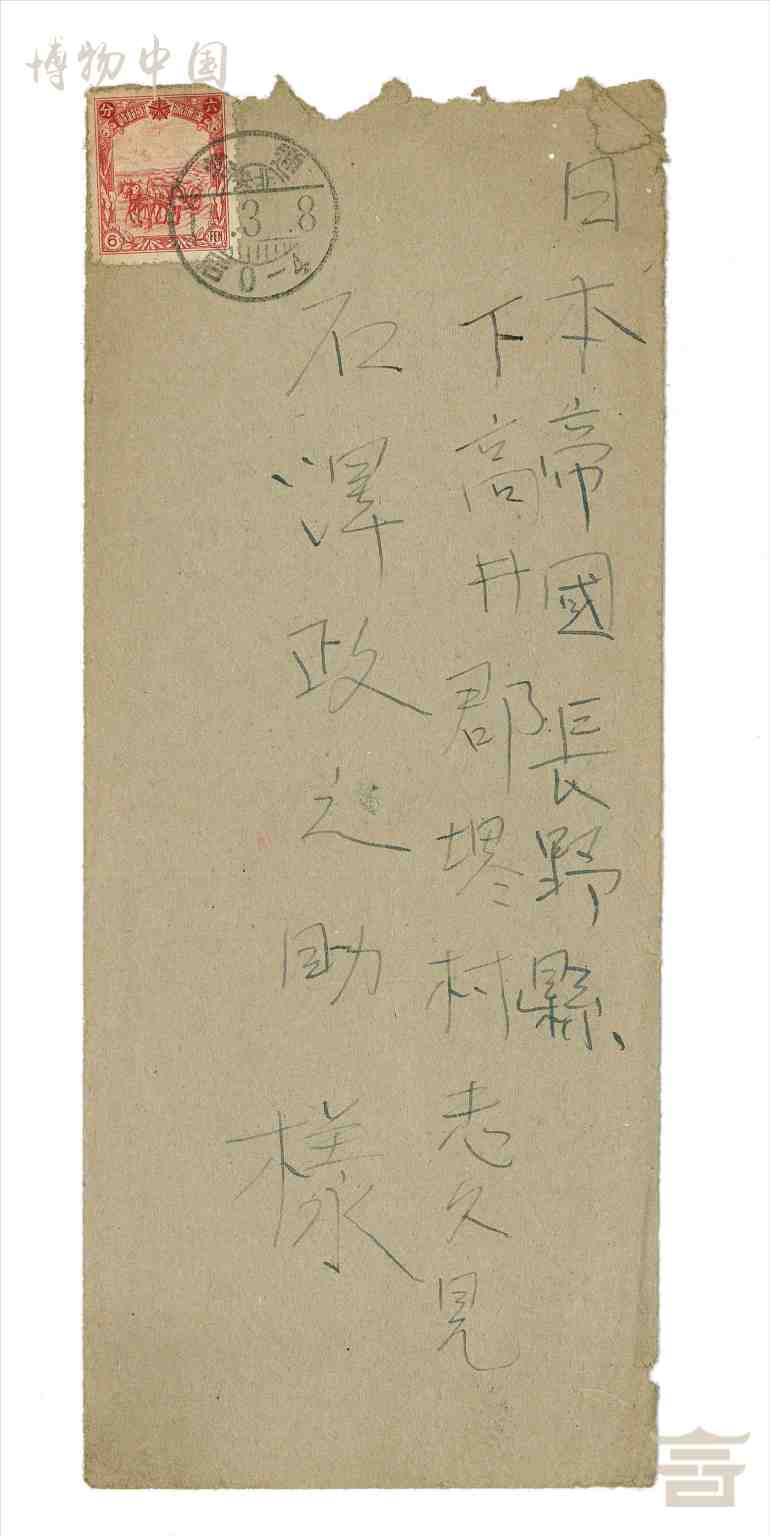 日本帝國長野縣
下高井郡堺村志久見
石澤政之助 樣
博物中国
分 六
6 FEN
.3 .8
0—4